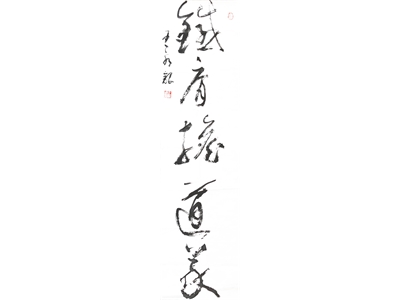 鐵肩擔道義